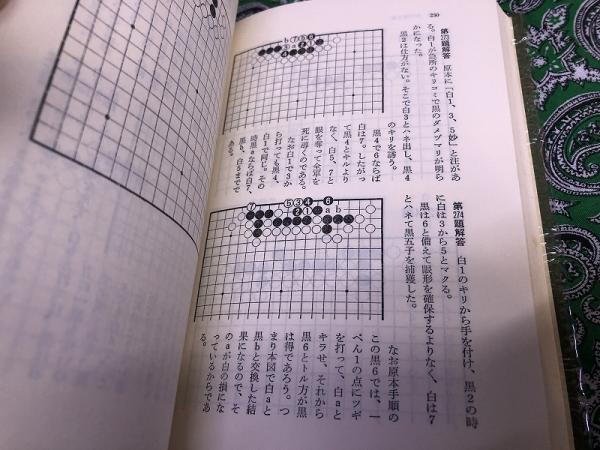 230
第273題解答　原本に「白1、3、5妙」と注があ
る。白1が急所のキリコミで黒のダメヅマリが明ら
かになった。
黒2は仕方がない。そこで白3とハネ出し、黒4
のキリを誘う。
黒4で6ならば
白は7。したがっ
て黒4とキルより
なく、白5、7と
眼を奪って全軍を
死に導くのである。
なお白1で3か
ら打っても黒4、
白1で同じ。その
時黒aならば白7、
黒b、白5までで
ある。
b⑦⑤❻
③a
第274題解答　白1のキリから手を付け、黒2の時
に白は3から5とマクる。
黒は6と備えて眼形を確保するよりなく、白は7
とハネて黒五子を捕獲した。
⑦ ⑤③❹ ❻
❷① a b
なお原本手順の
この黒6では、一
ぺん1の点にツギ
を打って、白aと
キラせ、それから
黒6とトル方が黒
は得であろう。つ
まり本図で白aと
黒bと交換した結
果になるので、そ
のaが白の損にな
っているからであ
る。